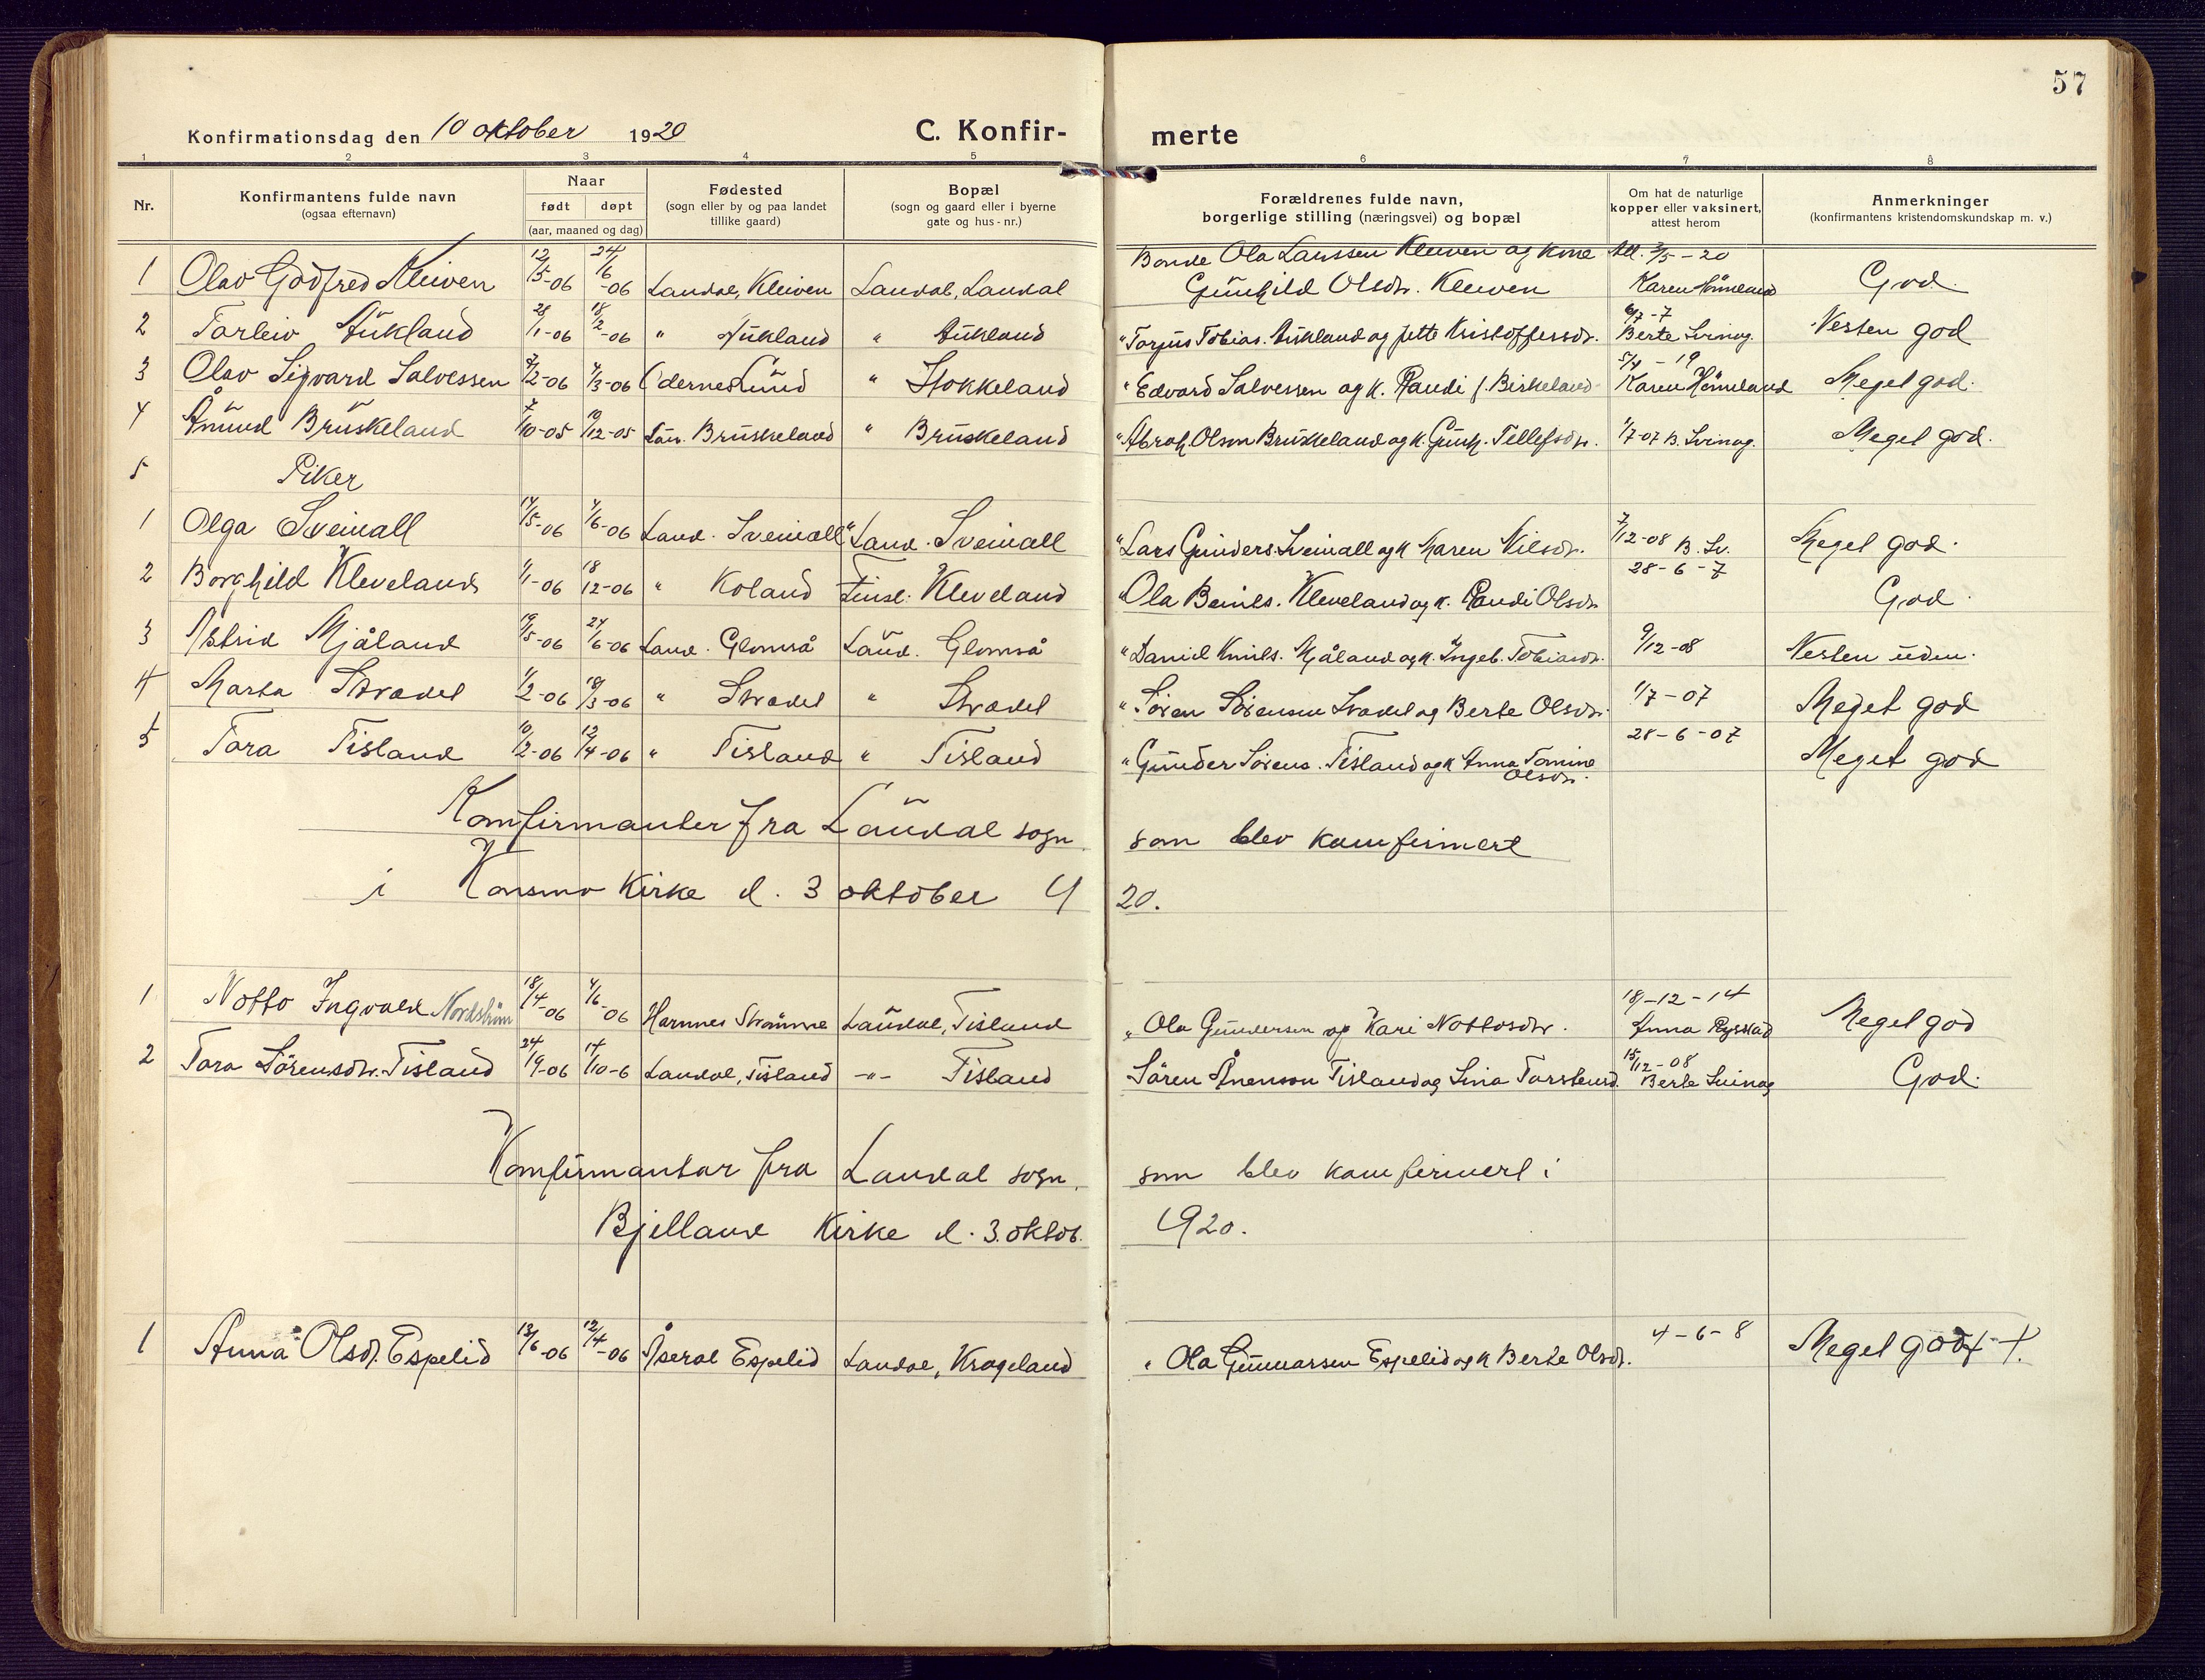 57
Konfirmationsdag den 10 oktober 1920 C. Konfirmerte
1 2 3 4 5 6 7 8
Nr. Konfirmantens fulde navn (ogsaa efternavn) Naar født døpt (aar, maaned og dag) Fødested (sogn eller by og paa landet tillike gaard) Bopæl (sogn og gaard eller i byerne gate og hus-nr.) Forældrenes fulde navn, borgerlige stilling (næringsvei) og bopæl Om hat de naturlige kopper eller vaksinert, attest herom Anmerkninger (konfirmantens kristendomskundskap m. v.)
1 Olav Godfred Kleiven 12/5-06 24/6-06 Laudal, Kleiven Laudal, Laudal Bonde Ola Larssen Kleiven og kone Gunhild Olsdr. Kleiven Att. 3/5-20 Karen Høineland God.
2 Tarleiv Aukland 28/1-06 18/2-06 " Aukland " Aukland " Torjus Tobias. Aukland og Jette Kristoffersdr. 6/7-7 Berte Svinag. Nesten god
3 Olav Sigvard Salvessen 7/2-06 4/3-06 Odernes Lund " Stokkeland " Edvard Salvessen og k. Randi f. Birkeland 5/4-19 Karen Høineland Meget god.
4 Ånund Bruskeland 7/10-05 10/12-05 Lau. Bruskeland " Bruskeland " Abrah. Olson Bruskeland og k. Gunh. Tellefsdr. 1/7-07 B. Svinag. Meget god.
5 Piker
1 Olga Sveinall 14/5-06 4/6-06 Laud. Sveinall " Laud. Sveinall " Lars Gunders. Sveinall og k Maren Nilsdr. 7/12-08 B. Sv. Meget god.
2 Borghild Kleveland 1/1-06 18/12-06 " Koland Finsl. Kleveland " Ola Beruls. Kleveland og k. Randi Olsdr 28-6-7 God.
3 Astrid Mjåland 19/5-06 24/6-06 Laud. Glomså Laud. Glomså " Daniel Knuls. Mjåland og k. Ingeb. Tobiasdr. 9/12-08 Nesten uden.
4 Marta Stradel 1/2-06 18/3-06 " Stradel " Stradel " Søren Sørensen Stradel og Berte Olsdr. 1/7-07 Meget god
5 Tora Tisland 10/2-06 12/4-06 " Tisland " Tisland " Gunder Sørens. Tisland og k Anna Tomine Olsdr. 28-6-07 Meget god
Komfirmanter fra Laudal sogn som blev komfirmert
i Konsmo Kirke d. 3 oktober 1920.
1 Notto Ingvald Nordstrøm 18/4-06 4/6-06 Harnnes Strømme Laudal, Tisland " Ola Gundersen og Kari Nottosdtr. 18-12-14 Anna Rysstad Meget god
2 Tora Sørensdtr. Tisland 24/9-06 14/10-6 Laudal, Tisland -"- Tisland Søren Ånenson Tisland og Sina Torstensd. 15/12-08 Berte Svinag God.
Komfirmantar fra Laudal sogn, som blev komfirmert i
Bjelland Kirke d. 3. oktob. 1920.
1 Anna Olsdt. Espelid 13/6-06 12/4-06 Åseral Espelid Laudal, Krageland " Ola Gunnarsen Espelid og k Berte Olsdt. 4-6-8 Meget god + +.